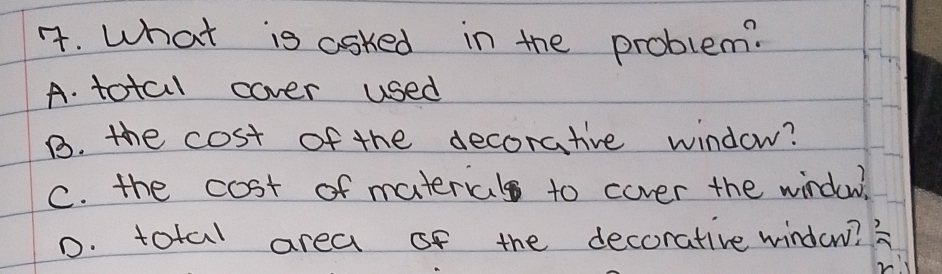 7. What is asked in the problem?
A. total cover used
B. the cost of the decorative window?
C. the cost of materials to cover the window?
D. total area of the decorative window?